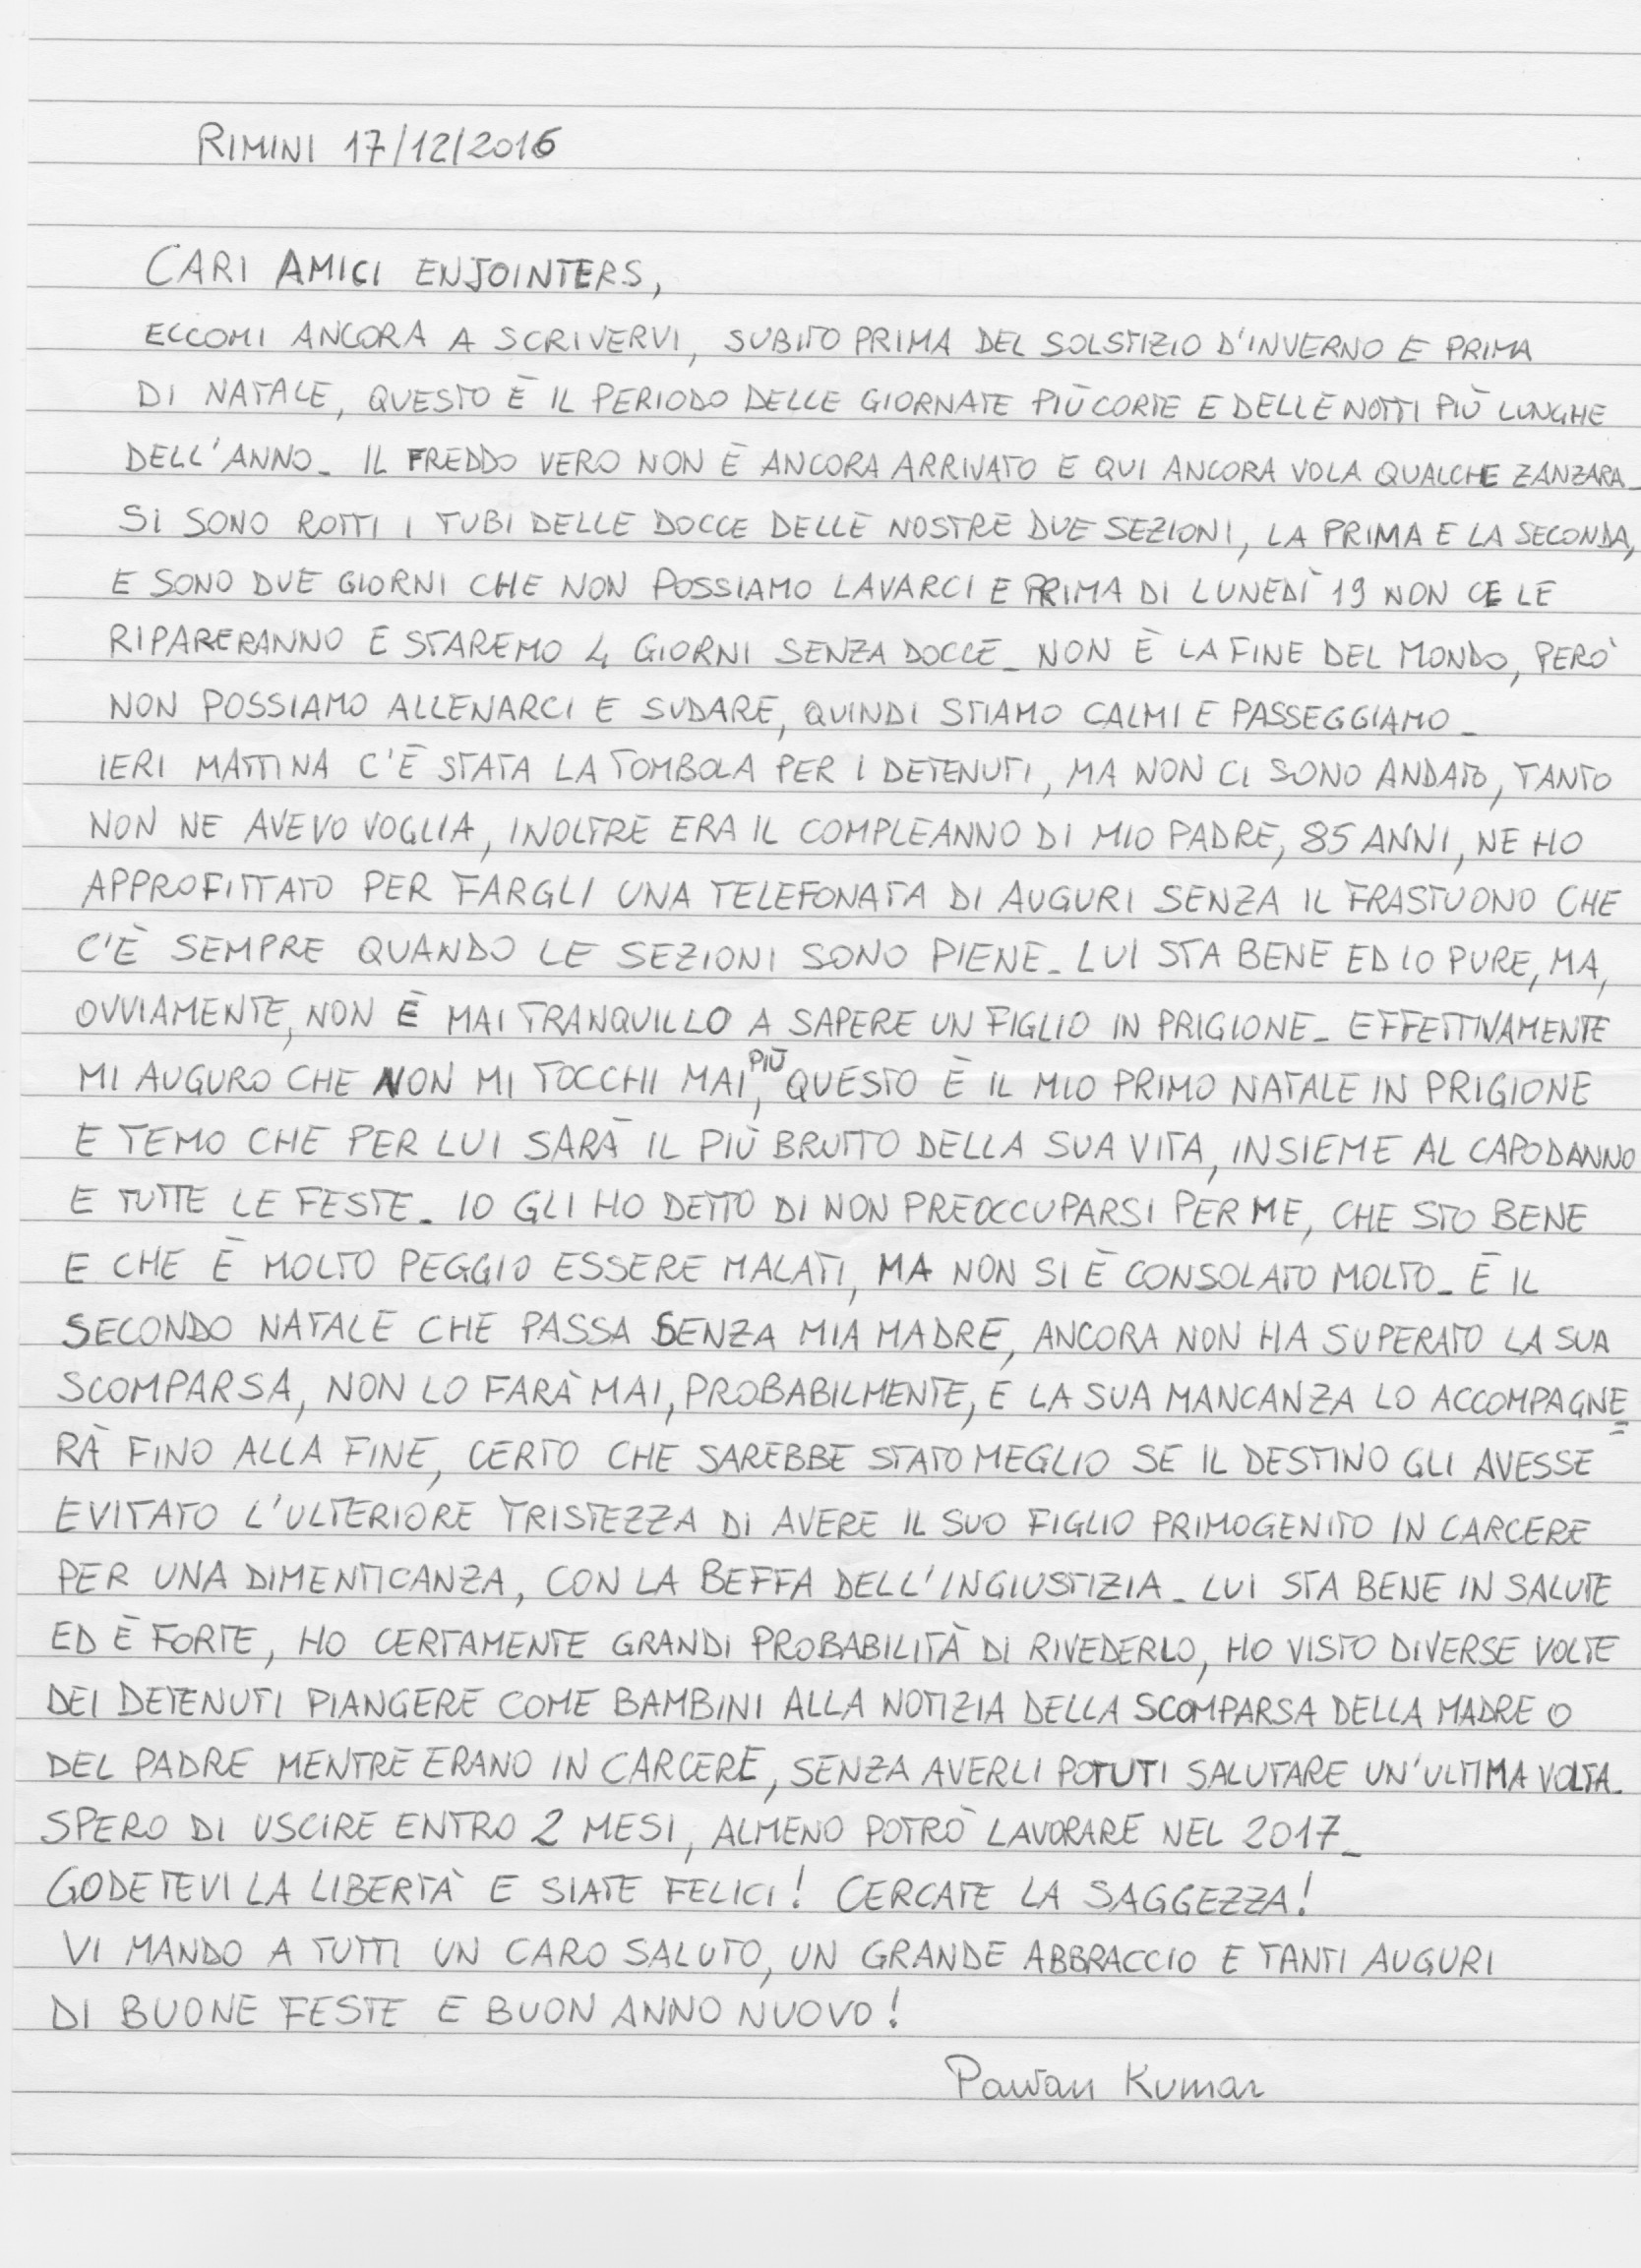 RIMINI 17/12/2016
CARI AMICI ENJOINTERS,
ECCOMI ANCORA A SCRIVERVI, SUBITO PRIMA DEL SOLSTIZIO D'INVERNO E PRIMA
DI NATALE, QUESTO È IL PERIODO DELLE GIORNATE PIÙ CORTE E DELLE NOTTI PIÙ LUNGHE
DELL'ANNO_ IL FREDDO VERO NON È ANCORA ARRIVATO E QUI ANCORA VOLA QUALCHE ZANZARA_
SI SONO ROTTI I TUBI DELLE DOCCE DELLE NOSTRE DUE SEZIONI, LA PRIMA E LA SECONDA,
E SONO DUE GIORNI CHE NON POSSIAMO LAVARCI E PRIMA DI LUNEDÌ 19 NON CE LE
RIPARERANNO E STAREMO 4 GIORNI SENZA DOCCE_ NON È LA FINE DEL MONDO, PERÒ
NON POSSIAMO ALLENARCI E SUDARE, QUINDI STIAMO CALMI E PASSEGGIAMO_
IERI MATTINA C'È STATA LA TOMBOLA PER I DETENUTI, MA NON CI SONO ANDATO, TANTO
NON NE AVEVO VOGLIA, INOLTRE ERA IL COMPLEANNO DI MIO PADRE, 85 ANNI, NE HO
APPROFITTATO PER FARGLI UNA TELEFONATA DI AUGURI SENZA IL FRASTUONO CHE
C'È SEMPRE QUANDO LE SEZIONI SONO PIENE_ LUI STA BENE ED IO PURE, MA,
OVVIAMENTE, NON È MAI TRANQUILLO A SAPERE UN FIGLIO IN PRIGIONE_ EFFETTIVAMENTE
MI AUGURO CHE NON MI TOCCHI MAI PIÙ, QUESTO È IL MIO PRIMO NATALE IN PRIGIONE
E TEMO CHE PER LUI SARÀ IL PIÙ BRUTTO DELLA SUA VITA, INSIEME AL CAPODANNO
E TUTTE LE FESTE_ IO GLI HO DETTO DI NON PREOCCUPARSI PER ME, CHE STO BENE
E CHE È MOLTO PEGGIO ESSERE MALATI, MA NON SI È CONSOLATO MOLTO_ È IL
SECONDO NATALE CHE PASSA SENZA MIA MADRE, ANCORA NON HA SUPERATO LA SUA
SCOMPARSA, NON LO FARÀ MAI, PROBABILMENTE, E LA SUA MANCANZA LO ACCOMPAGNE=
RÀ FINO ALLA FINE, CERTO CHE SAREBBE STATO MEGLIO SE IL DESTINO GLI AVESSE
EVITATO L'ULTERIORE TRISTEZZA DI AVERE IL SUO FIGLIO PRIMOGENITO IN CARCERE
PER UNA DIMENTICANZA, CON LA BEFFA DELL'INGIUSTIZIA_ LUI STA BENE IN SALUTE
ED È FORTE, HO CERTAMENTE GRANDI PROBABILITÀ DI RIVEDERLO, HO VISTO DIVERSE VOLTE
DEI DETENUTI PIANGERE COME BAMBINI ALLA NOTIZIA DELLA SCOMPARSA DELLA MADRE O
DEL PADRE MENTRE ERANO IN CARCERE, SENZA AVERLI POTUTI SALUTARE UN'ULTIMA VOLTA_
SPERO DI USCIRE ENTRO 2 MESI, ALMENO POTRÒ LAVORARE NEL 2017_
GODETEVI LA LIBERTÀ E SIATE FELICI! CERCATE LA SAGGEZZA!
VI MANDO A TUTTI UN CARO SALUTO, UN GRANDE ABBRACCIO E TANTI AUGURI
DI BUONE FESTE E BUON ANNO NUOVO!
Pawan Kumar